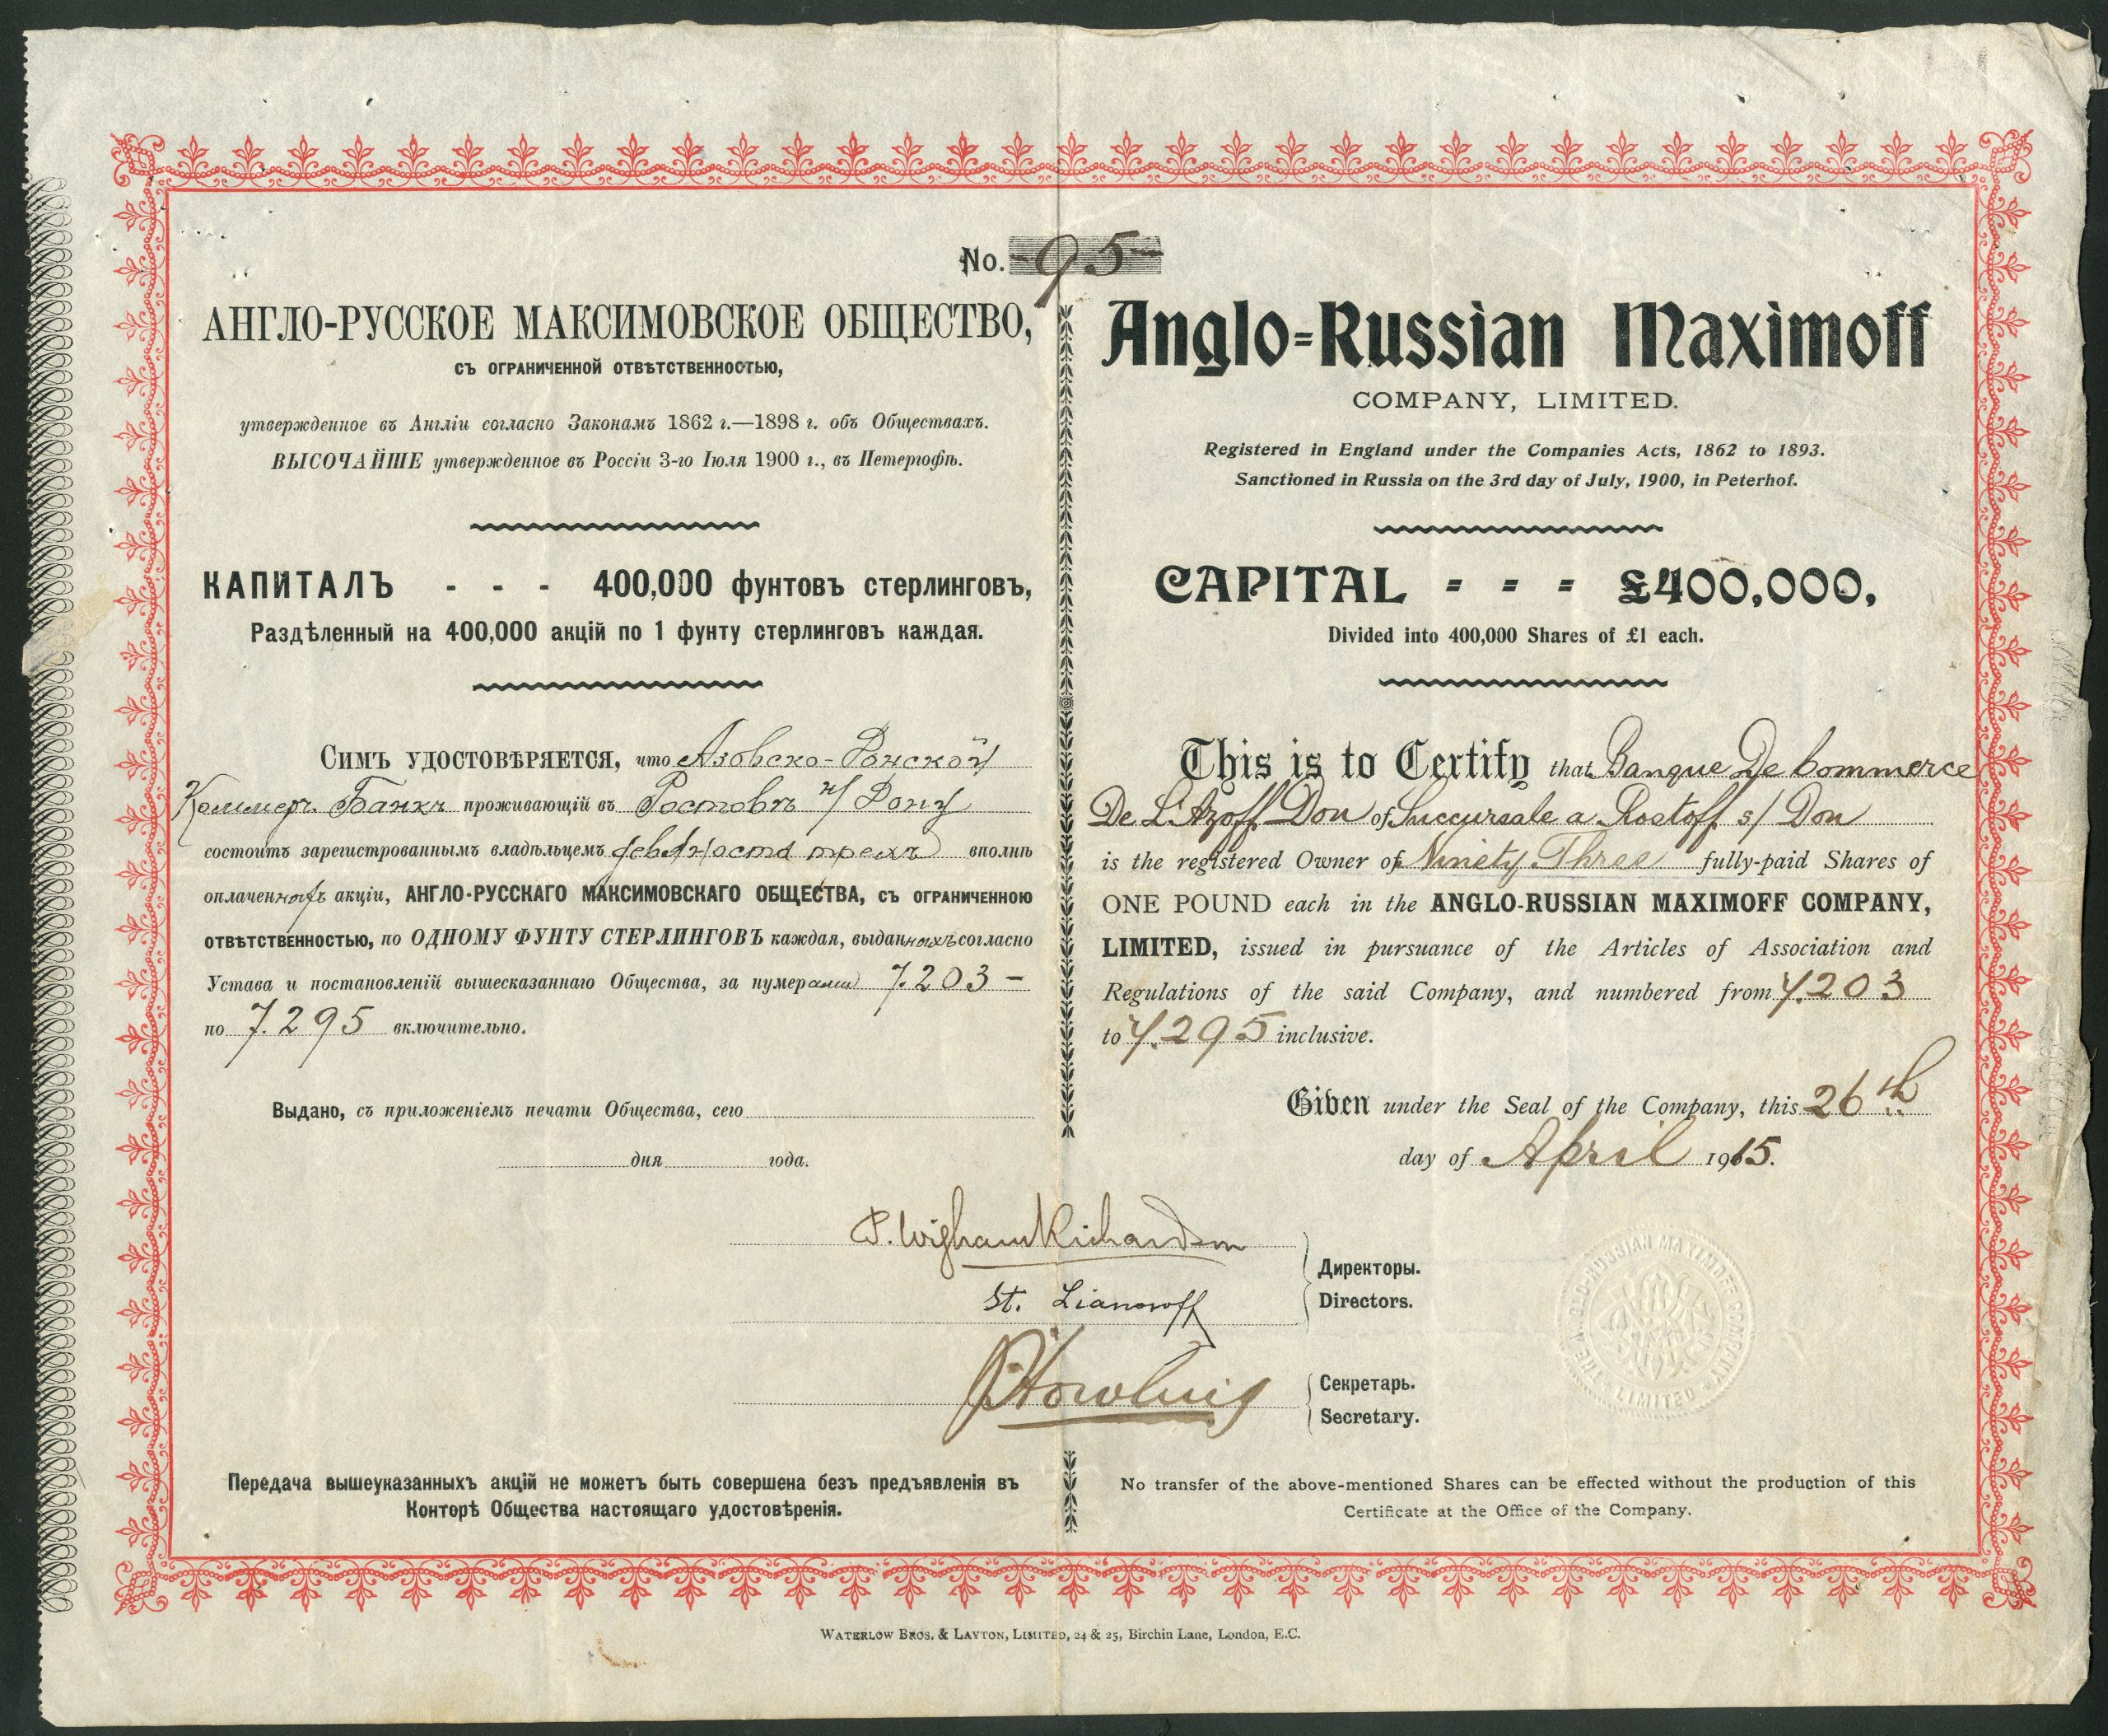 No. 95
АНГЛО-РУССКОЕ МАКСИМОВСКОЕ ОБЩЕСТВО,
СЪ ОГРАНИЧЕННОЙ ОТВѢТСТВЕННОСТЬЮ,
утвержденное въ Англіи согласно Законамъ 1862 г.—1898 г. объ Обществахъ.
ВЫСОЧАЙШЕ утвержденное въ Россіи 3-го Іюля 1900 г., въ Петергофѣ.
КАПИТАЛЪ - - - 400,000 фунтовъ стерлинговъ,
Раздѣленный на 400,000 акцій по 1 фунту стерлинговъ каждая.
СИМЪ УДОСТОВѢРЯЕТСЯ, что Азовско-Донской
Коммерч. Банкъ проживающій въ Ростовѣ н/ Дону
состоитъ зарегистрованнымъ владѣльцемъ девяноста трехъ вполнѣ
оплаченныхъ акціи, АНГЛО-РУССКАГО МАКСИМОВСКАГО ОБЩЕСТВА, СЪ ОГРАНИЧЕННОЮ
ОТВѢТСТВЕННОСТЬЮ, по ОДНОМУ ФУНТУ СТЕРЛИНГОВЪ каждая, выданныхъ согласно
Устава и постановленій вышесказаннаго Общества, за нумерами 7.203 -
по 7.295 включительно.
Выдано, съ приложеніемъ печати Общества, сего
дня года.
Anglo-Russian Maximoff
COMPANY, LIMITED.
Registered in England under the Companies Acts, 1862 to 1893.
Sanctioned in Russia on the 3rd day of July, 1900, in Peterhof.
CAPITAL - - - £400,000,
Divided into 400,000 Shares of £1 each.
This is to Certify that Banque De Commerce
De L'Azoff Don of Succursale a Rostoff s/ Don
is the registered Owner of Ninety Three fully-paid Shares of
ONE POUND each in the ANGLO-RUSSIAN MAXIMOFF COMPANY,
LIMITED, issued in pursuance of the Articles of Association and
Regulations of the said Company, and numbered from 7.203
to 7.295 inclusive.
Given under the Seal of the Company, this 26th
day of April 1915.
P. Wigham Richardson
St. Lianosoff
Директоры.
Directors.
Секретарь.
Secretary.
THE ANGLO-RUSSIAN MAXIMOFF COMPANY LIMITED
Передача вышеуказанныхъ акцій не можетъ быть совершена безъ предъявленія въ
Конторѣ Общества настоящаго удостовѣренія.
No transfer of the above-mentioned Shares can be effected without the production of this
Certificate at the Office of the Company.
WATERLOW BROS. & LAYTON, LIMITED, 24 & 25, Birchin Lane, London, E.C.